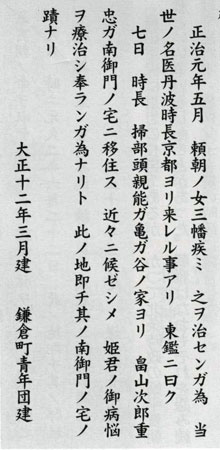 正治元年五月　頼朝ノ女三幡疾ミ　之ヲ治センガ為　当
世ノ名医丹波時長京都ヨリ来レル事アリ　東鑑ニ曰ク
七日　時長　掃部頭親能ガ亀ガ谷ノ家ヨリ　畠山次郎重
忠ガ南御門ノ宅ニ移住ス　近々ニ候ゼシメ　姫君ノ御病悩
ヲ療治シ奉ランガ為ナリト　此ノ地即チ其ノ南御門ノ宅ノ
蹟ナリ
大正十二年三月建　鎌倉町青年団建